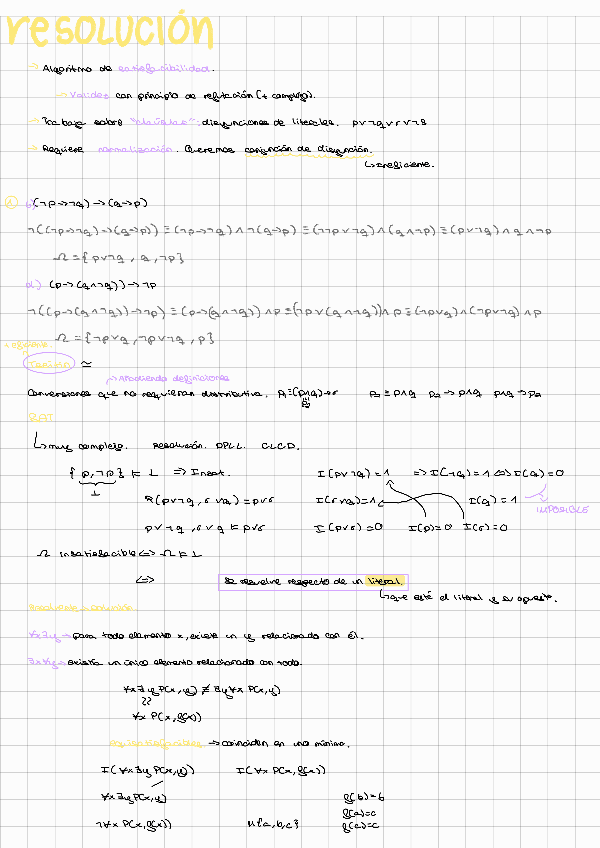 resolución
→ Algoritmo de satisfacibilidad.
→ Validez con principio de refutación (+ complejo).
→ Trabaja sobre "cláusulas": disyunciones de literales. p∨¬q∨r∨¬s
→ Requiere normalización. Queremos conjunción de disyunción.
↳ Ineficiente.
1 (¬p→¬q)→(q→p)
¬((¬p→¬q)→(q→p)) ≡ (¬p→¬q)∧¬(q→p) ≡ (¬¬p∨¬q)∧(q∧¬p) ≡ (p∨¬q)∧q∧¬p
Ω={p∨¬q, q, ¬p}
d) (p→(q∧¬q))→¬p
¬((p→(q∧¬q))→¬p) ≡ (p→(q∧¬q))∧p ≡ (¬p∨(q∧¬q))∧p ≡ (¬p∨q)∧(¬p∨¬q)∧p
Ω={¬p∨q, ¬p∨¬q, p}
≃
↗ Añadiendo definiciones
Conversiones que no requieran distributiva.
SAT
↳ muy complejo. Resolución. DPLL. CLCD.
{p,¬p} ⊨ ⊥ ⇒ Insat. I(p∨¬q)=1 ⇒ I(¬q)=1 ⇔ I(q)=0
⊥
R(p∨¬q, σ∨q)=p∨σ I(σ∨q)=1 I(q)=1
IMPOSIBLE
p∨¬q, σ∨q ⊨ p∨σ I(p∨σ)=0 I(p)=0 I(σ)=0
Ω insatisfacible ⇔ Ω ⊨ ⊥
⇔ Se resuelve respecto de un literal.
↳ que esté el literal y su opuesto.
∀x∃y → para todo elemento x, existe un y relacionado con él.
∃x∀y → existe un único elemento relacionado con todo.
∀x∃y P(x,y) ≢ ∃y∀x P(x,y)
∀x P(x,g(x))
→ coinciden en una mínimo.
I(∀x∃y P(x,y)) I(∀x P(x,g(x)))
∀x∃y P(x,y) g(b)=b
g(a)=c
¬∀x P(x,g(x)) U{a,b,c} g(c)=c